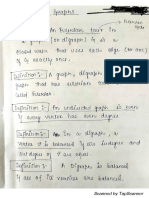 Graphs
Eulerian
An Eulerian tour in
a graph (or digraph) G is a
closed walk that uses each edge (or arc)
of G exactly once.
Definition:- A graph, digraph
graph that has eulerian
called Eulerian.
Definition:- An undirected graph is even
if every vertex has even degree.
Definition:- In a digraph, a
vertex is balanced if its indegree and
outdegree of are same
Definition:- A digraph is balanced
if all of its vertices are balanced.
Scanned by TapScanner